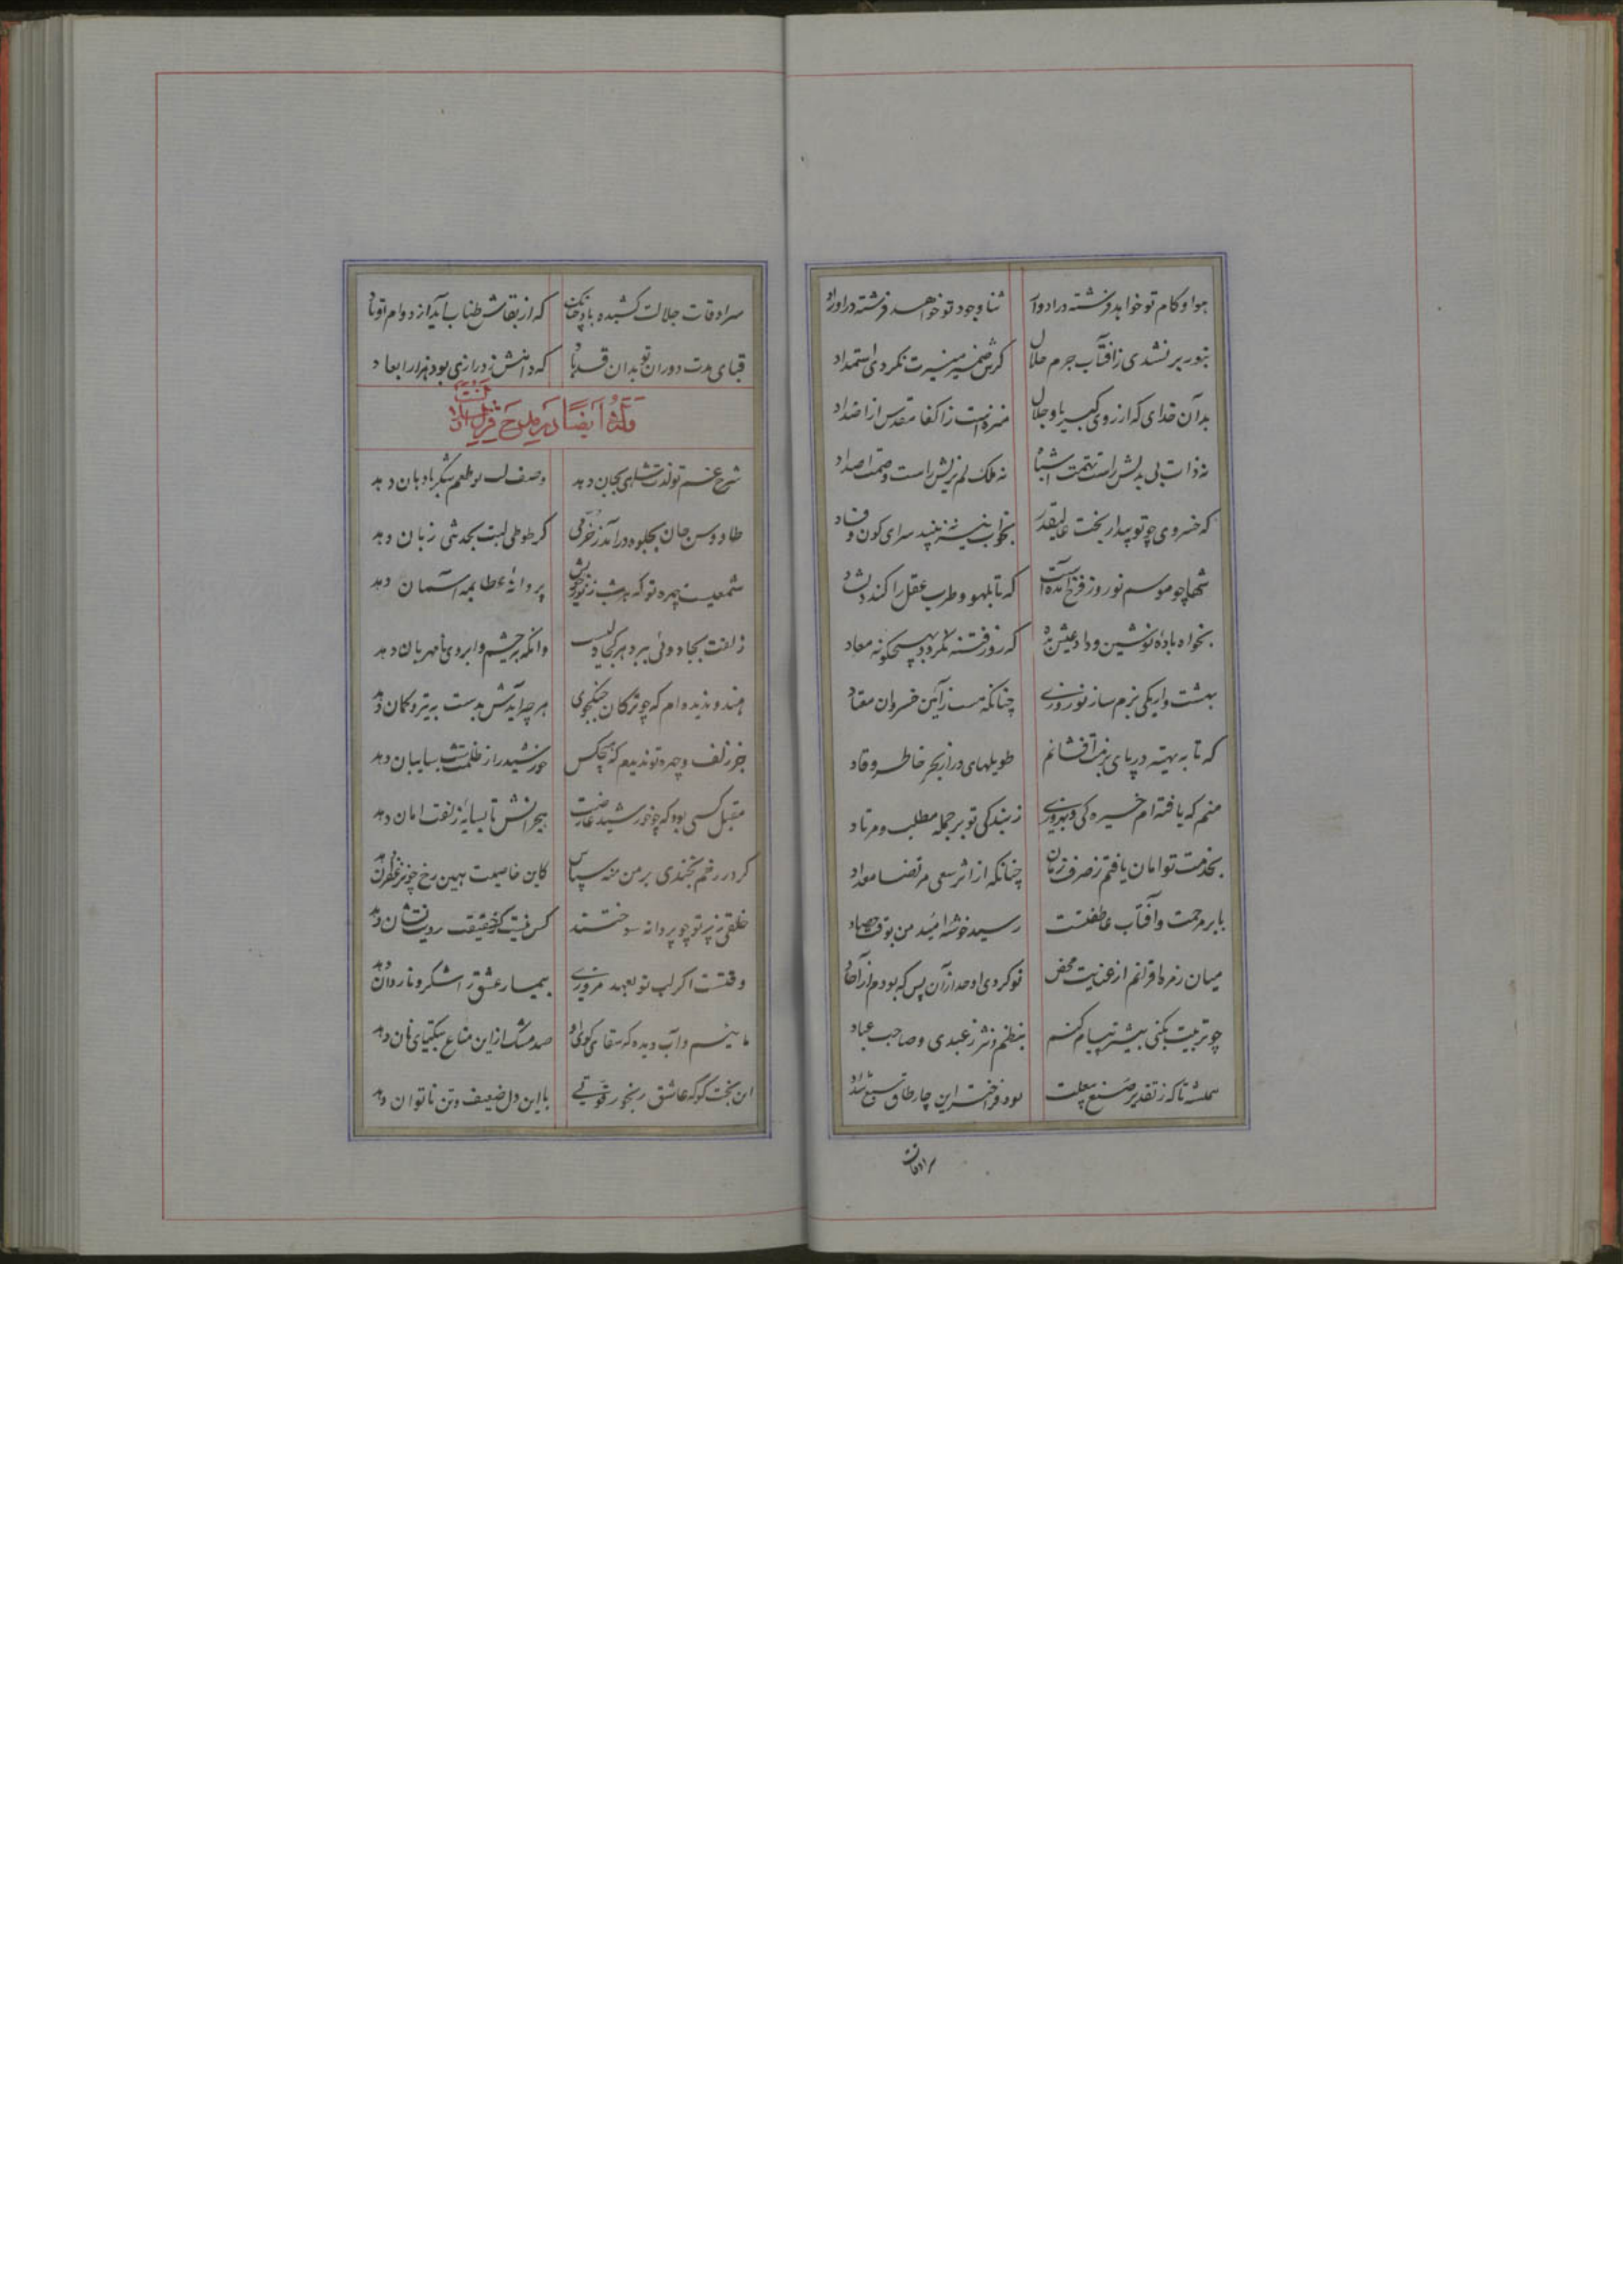 هوا و کام تو خواهد فرشته در ادوار ثنا وجود تو خواهد فرشته در اوراد
بنور بر نشدی ز آفتاب جرم هلال گرش ضمیر منیرت نکردی استمداد
بدان خدای که از روی کبریا و جلال منزه است ز اکفا مقدس از اضداد
نه ذات بی بدلش راست تهمت اشباه نه ملک لم یزلش راست وصمت اضداد
که خسروی چو تو بیدار بخت عالیقدر بخواب نیز نبیند سرای کون و فساد
شها چو موسم نوروز فرخ آمده است که تا بلهو و طرب عقل را کند دلشاد
بخواه باده نوشین و داد عیش بده که روز رفته نگردد بهیچگونه معاد
بهشت وار یکی بزم ساز نوروزی چنانکه هست ز آئین خسروان معتاد
که تا به تهنیه در پای بزمت افشانم طویلهای در از بحر خاطر وقاد
منم که یافته ام خیره کی و بهروزی ز بندکی تو بر جمله مطلب و مرتاد
بخدمت تو امان یافتم ز صرف زمان چنانکه از اثر سعی مرتضا مقداد
بابر مرحمت و آفتاب عاطفتت رسید خوشه امید من بوقت حصاد
میان زمره اقرانم از عنایت محض تو کردی اوحد از آن پس که بودم از آحاد
چو تربیت بکنی بیشتر قیام کنم بنظم و نثر ز عبدی و صاحب عباد
همیشه تا که ز تقدیر صنع بیعلت بود فراخته این چار طاق سبع شداد
سرادقات
سرادقات جلالت کشیده باد چنانک که از بقاش طناب آید از دوام اوتاد
قبای مدت دوران تو بدان قد باد که دامنش ز درازی بود هزار ابعاد
وله ایضا در مدح قزل ارسلان
شرح غم تو لذت شادی بجان دهد وصف لب تو طعم شکر با دهان دهد
طاووس جان بجلوه درآید ز خرمی گر طوطی لبت بحدیثی زبان دهد
شمعیست چهره تو که هر شب ز نور خویش پروانه عطا بمه آسمان دهد
زلفت بجادوئی ببرد هر کجا دلیست وانگه بچشم و ابروی نامهربان دهد
هندو ندیده ام که چو ترکان جنگجوی هر چه آیدش بدست به تیر و کمان دهد
جز زلف و چهره تو ندیدم که هیچکس خورشید را ز ظلمت شب سایبان دهد
مقبل کسی بود که چو خورشید عارضت هجرانش تا بسایه زلفت امان دهد
گر در رخم بخندی بر من منه سپاس کاین خاصیت همین رخ چون زعفران دهد
خلقی ز پرتو تو چو پروانه سوختند کس نیست کز حقیقت رویت نشان دهد
وقتست اگر لب تو بعهد مزوری بیمار عشق را شکر و ناردان دهد
مائیم و آب دیده که سقای کوی او صد مشک از این متاع بیکتای نان دهد
آن بخت کو که عاشق رنجور قوتی با این دل ضعیف و تن ناتوان دهد